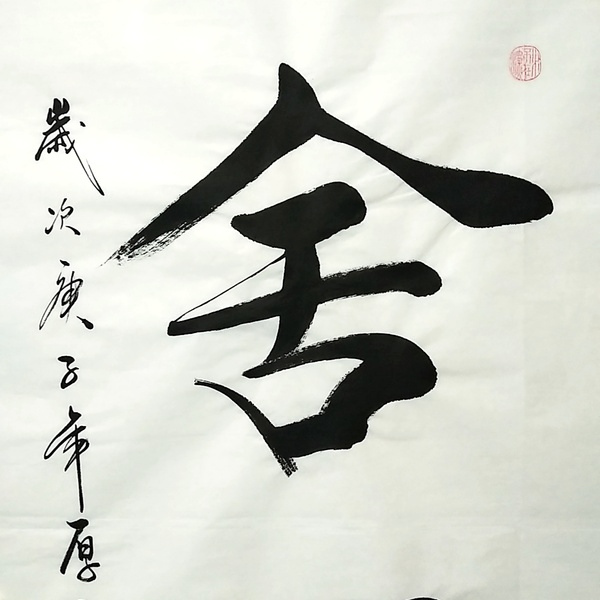 舍
歲次庚子年厚